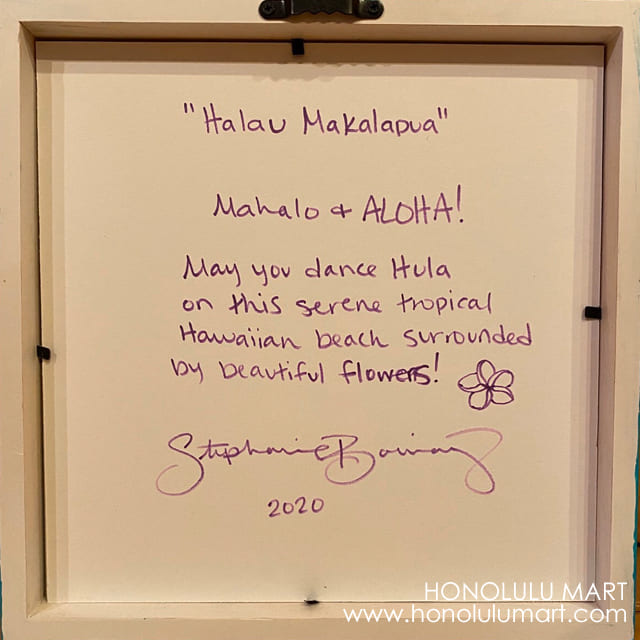 "Halau Makalapua"
Mahalo & ALOHA!
May you dance Hula
on this serene tropical
Hawaiian beach surrounded
by beautiful flowers!
Stephanie
2020
HONOLULU MART
www.honolulumart.com